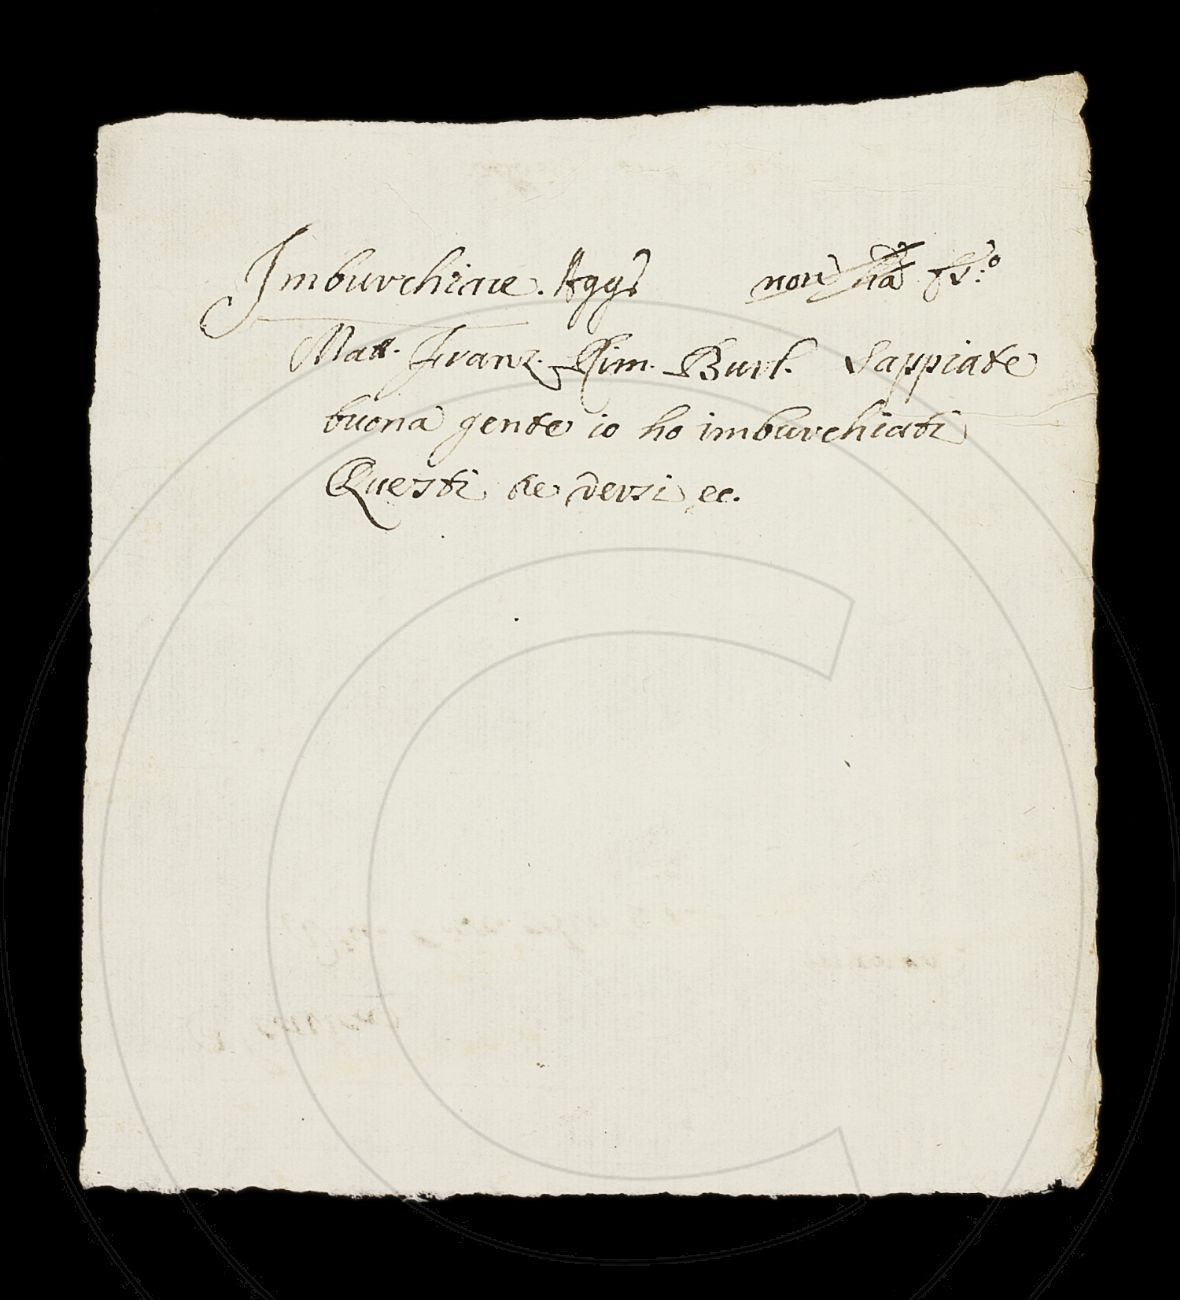 Imburchiare. Aggi non ha es.o
Matt. Franz. Rim. Burl. Sappiate
buona gente io ho imburchiati
Questi se versi ec.